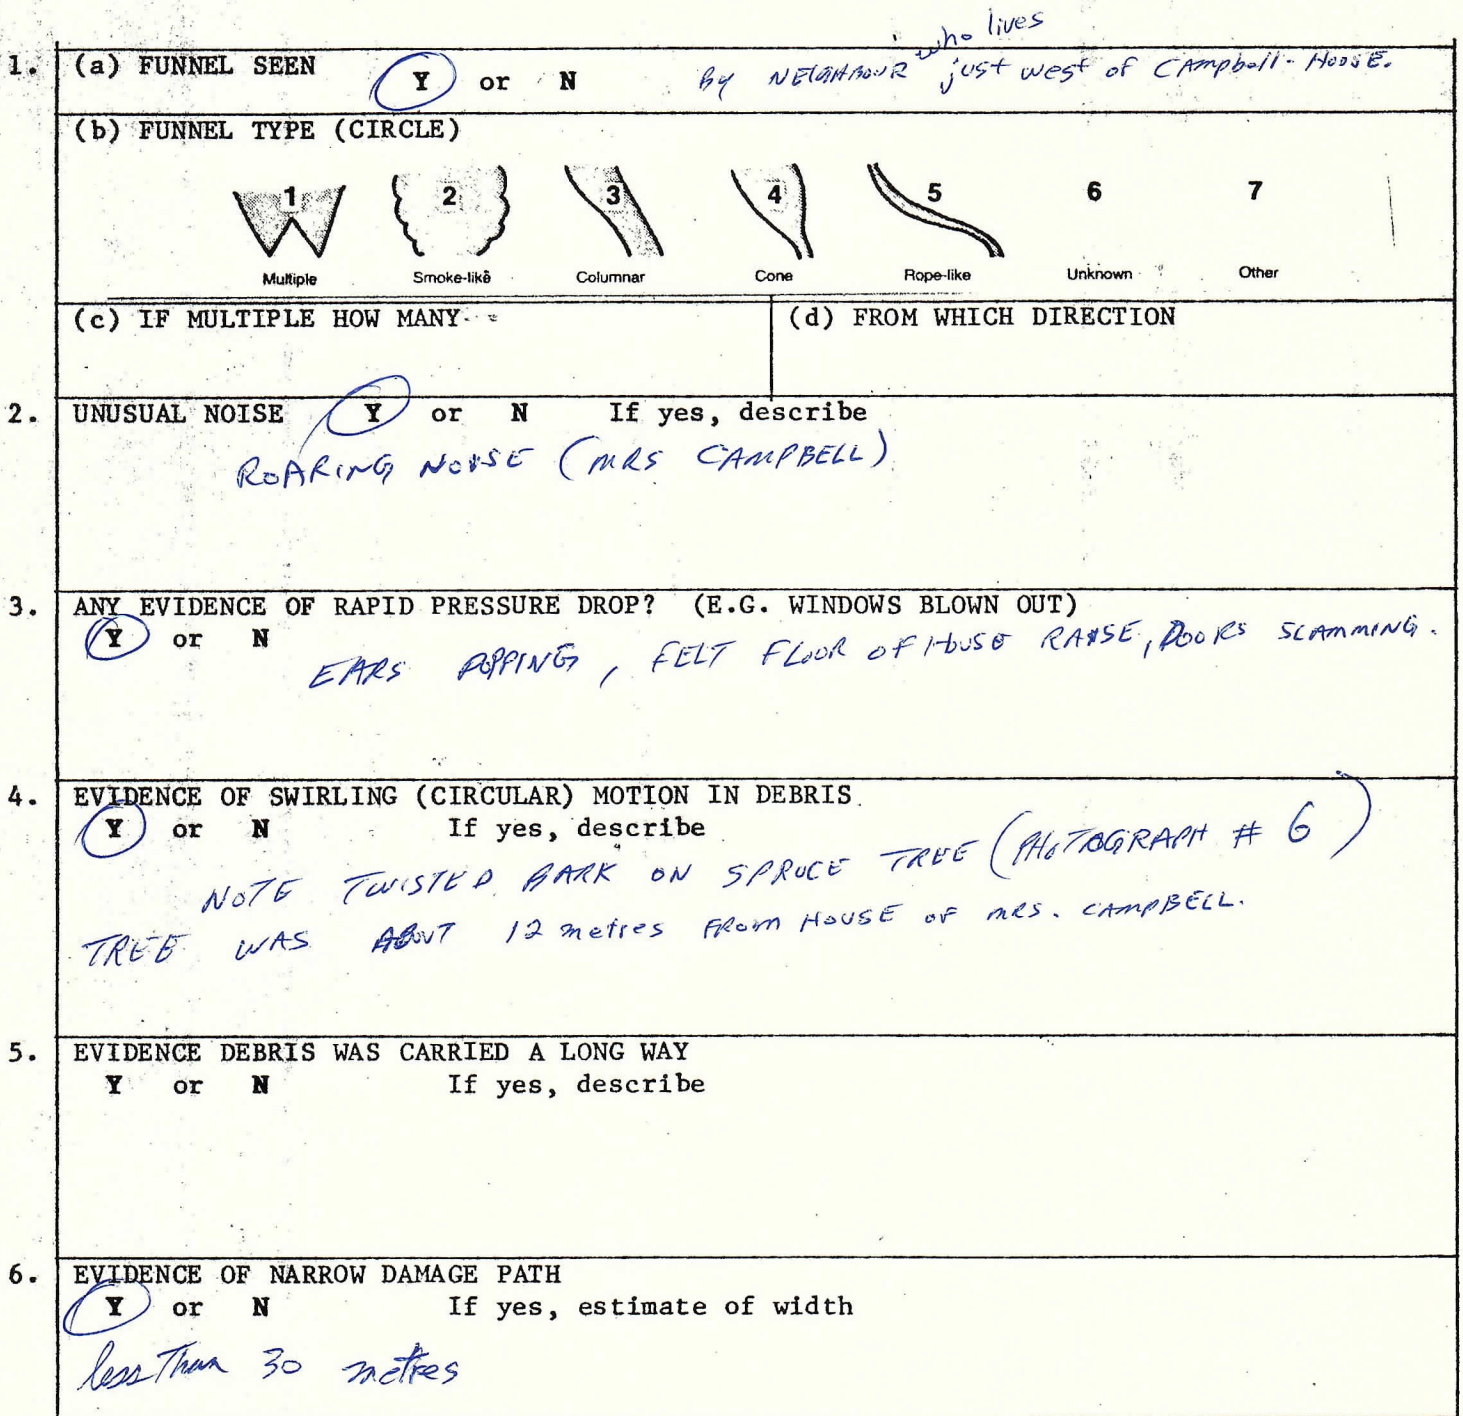 who lives
1. (a) FUNNEL SEEN Y or N By NEIGHBOUR just west of CAmpbell-HousE.
(b) FUNNEL TYPE (CIRCLE)
1 2 3 4 5 6 7
Multiple Smoke-like Columnar Cone Rope-like Unknown Other
(c) IF MULTIPLE HOW MANY (d) FROM WHICH DIRECTION
2. UNUSUAL NOISE Y or N If yes, describe
ROARING NOISE (MRS CAMPBELL)
3. ANY EVIDENCE OF RAPID PRESSURE DROP? (E.G. WINDOWS BLOWN OUT)
Y or N
EARS POPPING, FELT FLOOR OF HOUSE RAISE, DOORS SLAMMING.
4. EVIDENCE OF SWIRLING (CIRCULAR) MOTION IN DEBRIS
Y or N If yes, describe
NOTE TWISTED BARK ON SPRUCE TREE (PHOTOGRAPH # 6)
TREE WAS ABOUT 12 metres FROM HOUSE OF MRS. CAMPBELL.
5. EVIDENCE DEBRIS WAS CARRIED A LONG WAY
Y or N If yes, describe
6. EVIDENCE OF NARROW DAMAGE PATH
Y or N If yes, estimate of width
less Than 30 metres